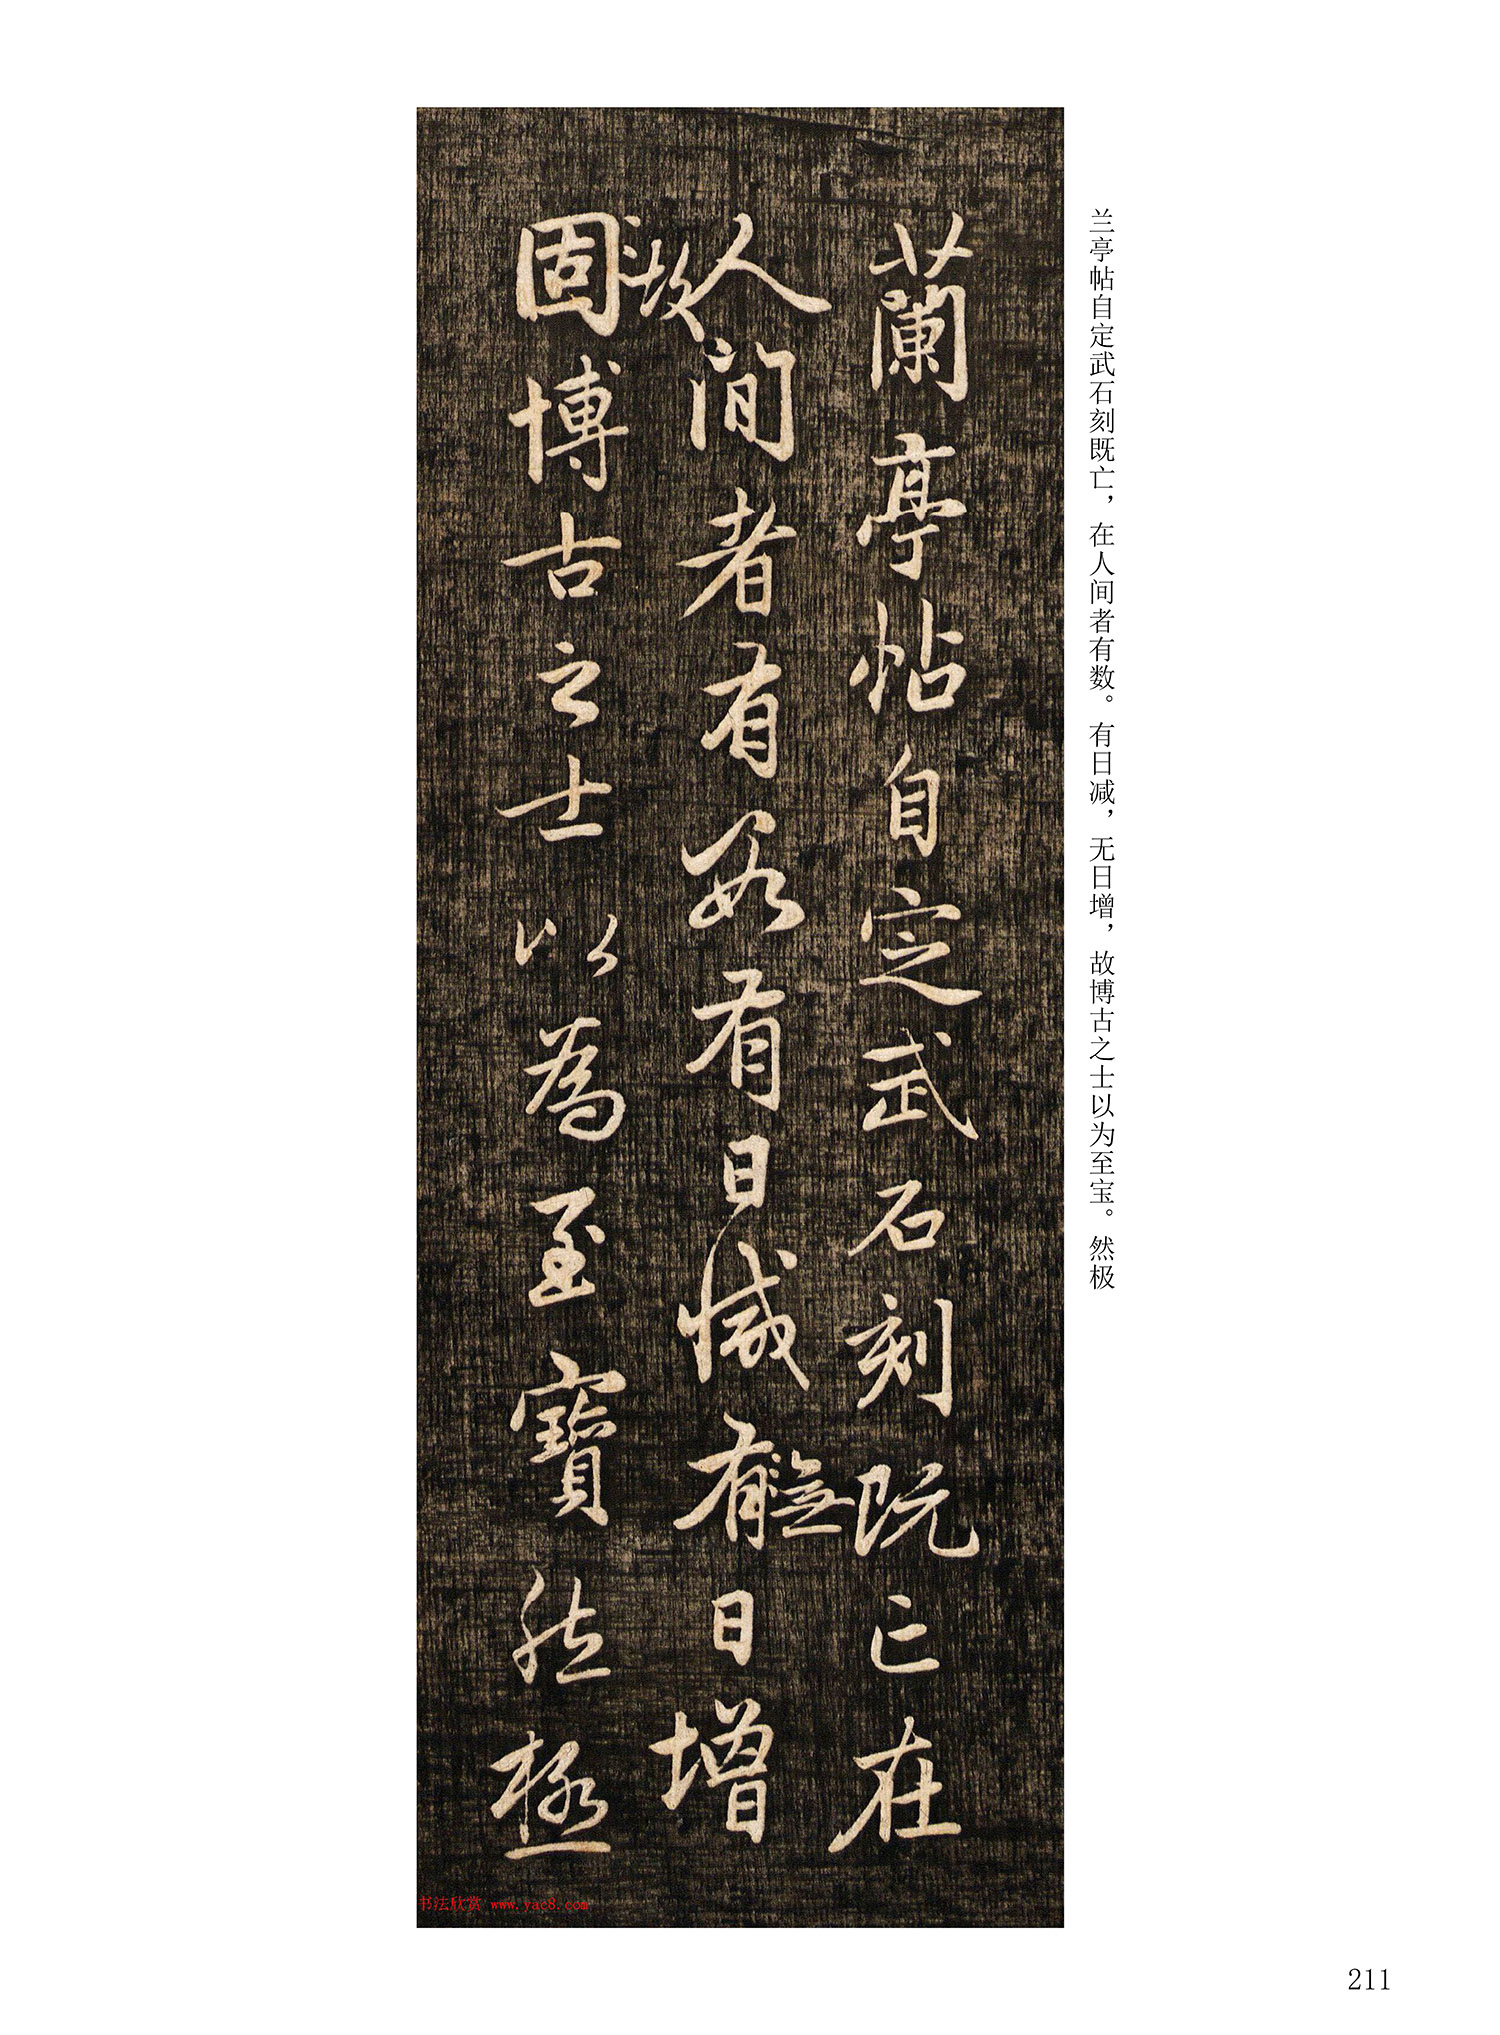 兰亭帖自定武石刻既亡，在人间者有数。有日减，无日增，故博古之士以为至宝。然极
蘭亭帖自定武石刻既亡在
人间者有数有日减有無日增
固故博古之士以為至寶然極
书法欣赏 www.yac8.com
211